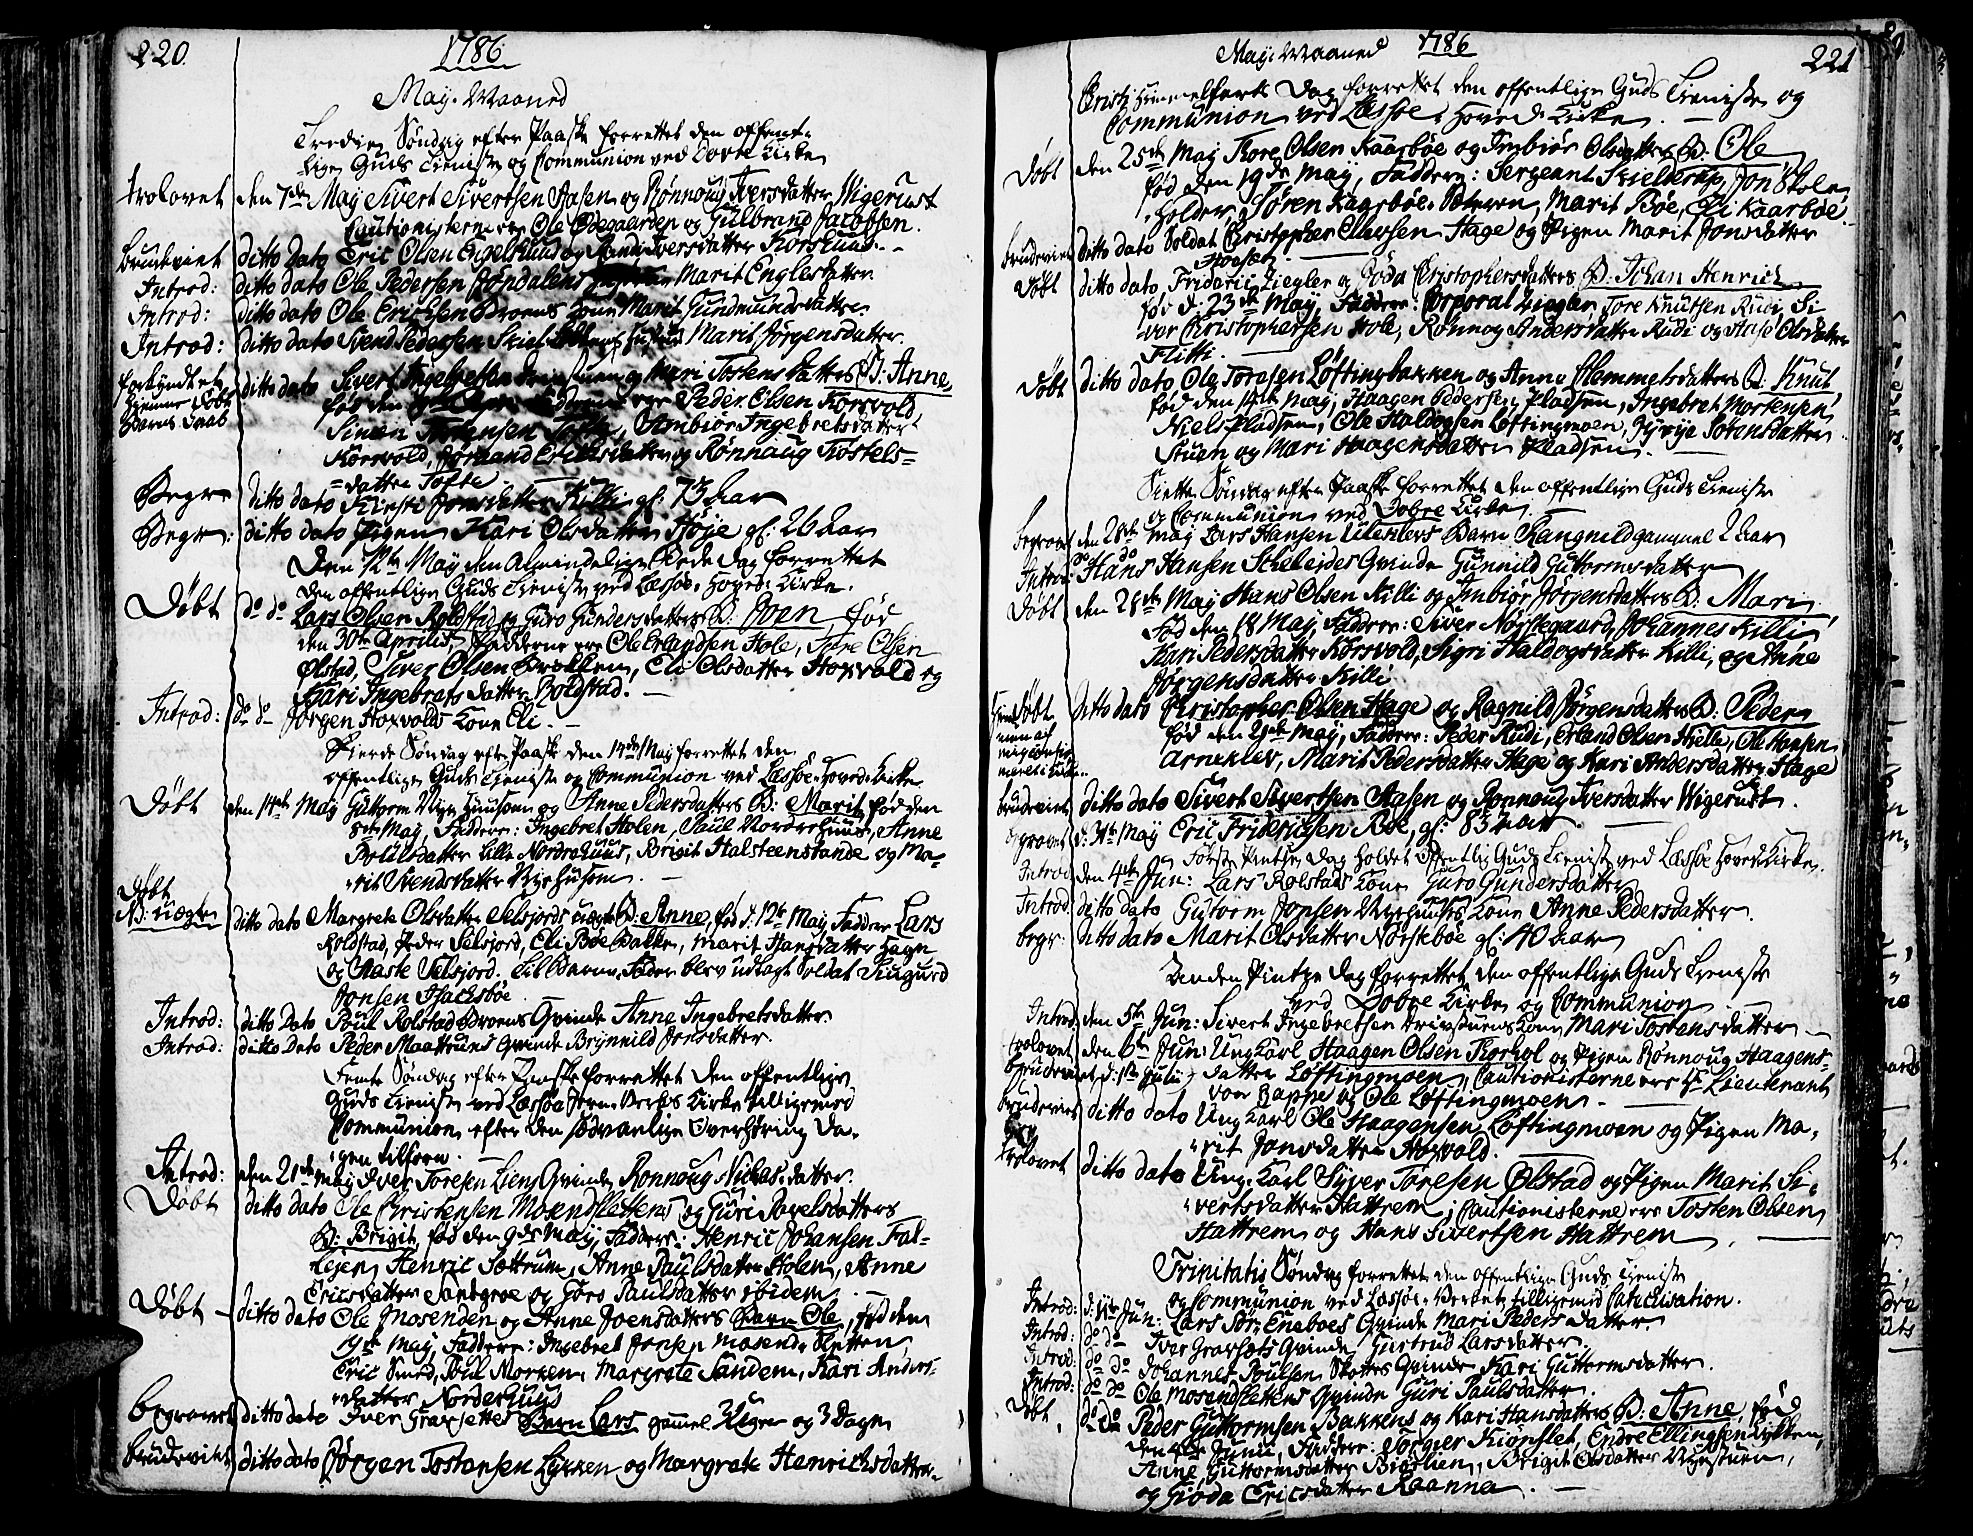 220.
1786
May. Maaned
Tredie Søndag efter Paaske forrettet den offent-
lige Guds Tieniste og Communion ved Dovre Kirke
trolovet den 7de May Sivert Sivertsen Aasen og Rønnoug Iversdatter Wigerust
Cautionisterne ere Ole Odegaarden og Gulbrand Jacobsen.
brudeviet ditto dato Eric Olsen Engelshuus og Iversdatter Korshuus.
Introd: ditto dato Ole Pedersen Jøndalens Marit Englesdatter
Introd: ditto dato Ole Erichsen Broens Kone Marit Gundmundsdatter.
Introd: ditto dato Svend Pedersen Marit Jørgensdatter.
forkyndt et hjemme døbt Barns Daab ditto dato Sivert Ingebretsen og Mari Tostensdatters B: Anne
fød den Fadderne ere Peder Olsen Korsvold,
Simen Tofte, Ambiør Ingebretsdatter
Korsvold, Erichsdatter og Rønnaug Tostels=
=datter Tofte
Begr: ditto dato Kirsti Jonsdatter Killi gl: 73 Aar
Begr: ditto dato Pigen Kari Olsdatter Høje gl: 26 Aar
Den 12te May den Almindelige Bede Dag forrettet
den offentlige Guds Tieniste ved Lessøe Hoved-Kirke.
Døbt do do Lars Olsen Rolstad og Guro Gundersdatters B: Joen, fød
den 30te Aprilis, Fadderne ere Ole Erlandsen Hole, Tore Olsen
Ølstad, Siver Olsen Brøllen, Eli Olsdatter Hoxvold og
Kari Ingebrets datter Rolstad.
Introd: do do Jørgen Hoxvolds Kone Eli.
Fierde Søndag efter Paaske den 14de May forrettet den
offentlige Guds Tieniste og Communion ved Lessøe Hoved-Kirke
Døbt den 14de May Guttorm Nye Huusom og Anne Pedersdatters B: Marit, fød den
8de May, Faddere: Ingebret Holen, Paul Nordrehuus, Anne
Poulsdatter Lille Nordrehuus, Brigit Halsteenstande og Ma-
-rit Svendsdatter Nyehusom.
Døbt
NB: uægte ditto dato Margrete Olsdatter Selsjords uægte B: Anne, fød d: 12te May, Faddere Lars
Rolstad, Peder Selsjord, Eli Bøe Bakke, Marit Hansdatter Hage
og Aaste Selsjord. Til Barne Fader blev udlagt Soldat Siugurd
Jonsen Isachsbøe.
Introd: ditto Dato Poul Rolstad Broens Qvinde Anne Ingebretsdatter.
Introd: ditto Dato Peder Maattuuns Qvinde Brynnild Jonsdatter.
Femte Søndag efter Paaske forrettet den offentlige
Guds Tieniste ved Lessøe Jern-Verks Kirke tilligemed
Communion, efter den sødvanlige Overhøring Da-
-gen tilforn.
Introd: den 21de May Iver Toresen Liens Qvinde Ronnoug Niclas-datter.
Døbt ditto dato Ole Christensen Mosendslettens og Guri Povelsdatters
B: Brigit, fød den 9de May, Faddere: Henric Johansen Fal-
lejen, Henric Sottrum, Anne Paulsdatter Holen, Anne
Ericsdatter Sandgroe og Goro Paulsdatter ibidem.
Døbt ditto dato Ole Mosenden og Anne Joensdatters Barn Ole, fød den
19de May, Faddere: Ingebret Jonsen Mosende Sletten,
Eric Smed, Poul Norken, Margrete Sandem, Kari Anders-
-datter Norderhuus
begravet ditto dato Iver Gravsettes Barn Lars gammel 3 Uger og 3 Dage
brudeviet ditto dato Jørgen Tostensen Lykken og Margrete Henrichsdatter
May. Maaned 1786
221
Christi Himmelfarts Dag forrettet den offentlige Guds Tieniste og
Communion ved Lessøe Hoved-Kirke.
Døbt den 25de May Tore Olsen Kaarbøe og Imbiør Olsdatters B: Ole
fød den 19de May, Faddere: Sergeant Skielderup, Jon Skole,
Holder, Søren Kaarbøe, Peteren, Marit Bøe, Eli Kaarbøe.
brudeviet ditto dato Soldat Christopher Ellevsen Hage og Pigen Marit Jonsdatter
Hoeset.
Døbt ditto dato Friderich Ziegler og Jøda Christophersdatters B: Johan Henrich
fød d: 23de May, Faddere: Corporal Ziegler, Tore Knutsen Rudi, Si-
vor Christophersen Hole, Rønnog Andersdatter Rudi og Aase Olsdatter
Flitti.
Døbt ditto dato Ole Toresen Løftingbakken og Anne Clemmetsdatters B: Knut
fød den 14de May, Haagen Pedersen Pladsen, Ingebret Mortensen,
Niels Pladsen, Ole Haldogsen Løftingmoen, Jyrije Sørensdatter
Stuen og Mari Haagensdatter Pladsen.
Siette Søndag efter Paaske forrettet den offentlige Guds Tieniste
og Communion ved Dovre Kirke.
begravet den 28de May Lars Hansen Ulekleivs Barn Rangnild gammel 2 Aar
Introd: do do Hans Hansen Scheleides Qvinde Gunnild Guttormsdatter
Døbt den 28de May Hans Olsen Killi og Imbiør Jørgensdatters B: Mari
fød den 18 May, Faddere: Siver Nørstegaard, Johannes Killi
Kari Pedersdatter Korsvold, Sigri Haldogsdatter Killi, og Anne
Jørgensdatter Killi
Døbt ditto dato Christopher Olsen Hage og Ragnild Jørgensdatters B: Peder
fød den 29de May, Faddere: Peder Rudi, Erland Olsen Hielle, Ole Hansen
Arneklev, Marit Pedersdatter Hage og Kari Andersdatter Hage
brudeviet ditto dato Sivert Sivertsen Aasen og Ronnoug Iversdatter Wigerust.
begravet d: 31te May Eric Friderichsen Bøe, gl: 83 Aar
Første Pintse Dag holdet Offentlig Guds Tieniste ved Lessøe Hoved Kirke.
Introd: den 4de Jun: Lars Rolstads Kone Guro Gundersdatter
Introd: ditto dato Gutorm Jonsen Nyehuuses Kone Anne Pedersdatter.
begr: ditto dato Marit Olsdatter Nørstebøe gl: 40 Aar
Anden Pintse Dag forrettet den offentlige Guds Tieniste
ved Dovre Kirke og Communion
Introd: den 5te Jun: Sivert Ingebretsen Kone Mari Tostensdatter
trolovet den 6te Jun: Ungkarl Haagen Olsen Korhol og Pigen Rønnoug Haagens-
brudeviet d: 1te Julii datter Løftingmoen, Cautionisterne ere Hr Lieutenant
von Rappe og Ole Løftingmoen.
brudeviet ditto dato Ungkarl Ole Haagensen Løftingmoen og Pigen Ma-
-rit Jonsdatter Hoxvold.
trolovet ditto dato Ung-Karl Syver Toresen Ølstad og Pigen Marit Si-
-vertsdatter Hattrem, Cautionisterne ere Tosten Olsen
Hattrem og Hans Sivertsen Hattrem.
Trinitatis Søndag forrettet den offentlige Guds Tieniste
og Communion ved Lessøe-Verket, tilligemed Catechisation.
Introd: d: 11te Jun: Lars Eneboes Qvinde Mari Peders datter.
Introd: do do Iver Gravsets Qvinde Gurtrud Larsdatter
Introd: do do Johannes Poulsen Slottes Qvinde Kari Guttormsdatter.
Introd: do do Ole Mosendslettens Qvinde Guri Paulsdatter.
Døbt do do Peder Guttormsen Bakkens og Kari Hansdatters B: Anne, fød
den 4de Junii, Faddere: Torgier Kiønslet, Endre Ellingsen Lykken,
Anne Guttormsdatter Biørlien, Brigit Olsdatter Nyestuen,
og Giøda Ericsdatter Raanna.